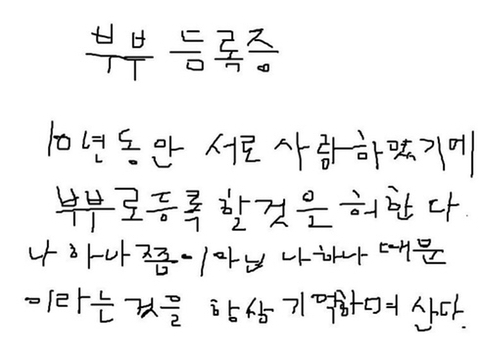 부부 등록증
10년동안 서로 사람하였기에
부부로등록 할것을 허한다.
나 하나쯤이아닌 나하나 때문
이라는 것을 항상 기억하며 산다.